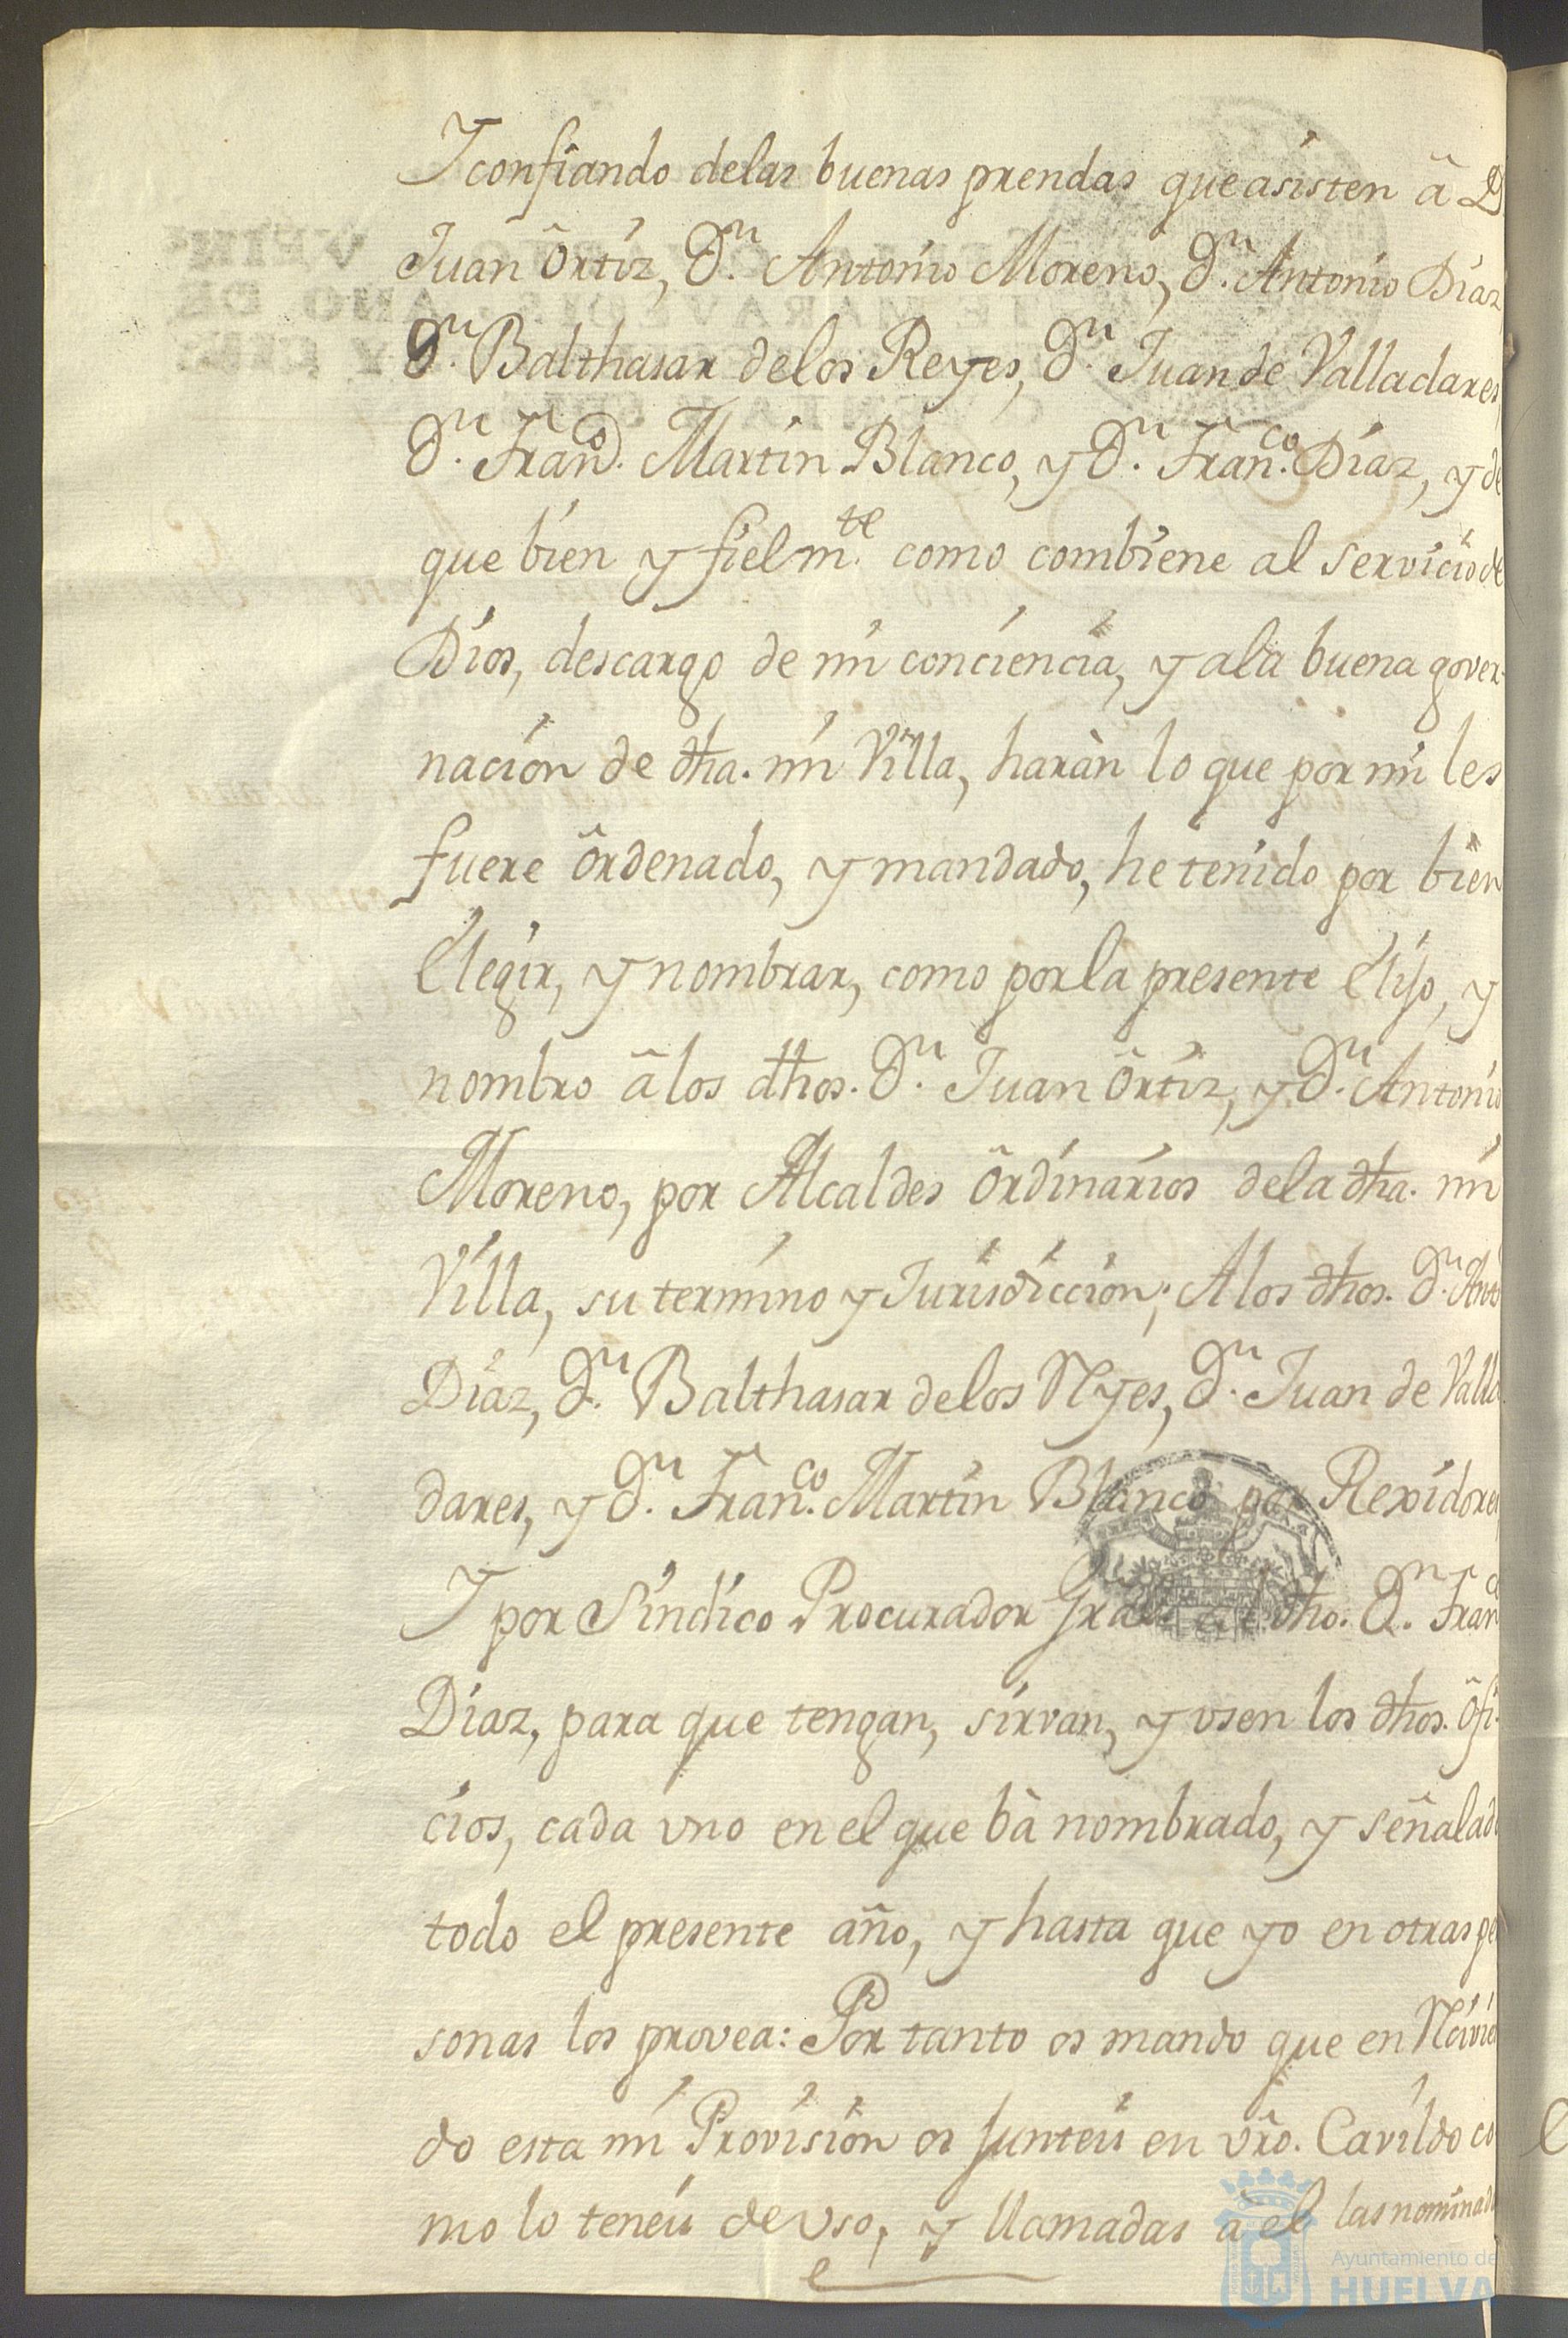 Y confiando delas buenas prendas que asisten â D
Juan Ôrtiz, Dn. Antonio Moreno, Dn. Antonio Diaz,
Dn. Balthasar delos Reyes, Dn. Juan de Valladares,
Dn. Franco. Martin Blanco, y Dn. Franco. Diaz, y de
que bien y fielmte. como combiene al servicio de
Dios, descargo de mi conciencia, y ala buena gover-
nacion de dha. mi Villa, haràn lo que por mi les
fuere ôrdenado, y mandado, he tenido por bien
Elegir, y nombrar, como por la presente Elijo, y
nombro â los dhos. Dn. Juan Ôrtiz, y Dn. Antonio
Moreno, por Alcaldes Ôrdinarios dela dha. mi
Villa, su termino y Jurisdiccion; A los dhos. Dn. Anto
Diaz, Dn. Balthasar delos Ryes, Dn. Juan de Valla
dares, y Dn. Franco. Martin Blanco por Rexidores,
Y por Sindico Procurador Gral al dho. Dn. Franco
Diaz, para que tengan, sirvan, y usen los dhos. ôfi-
cios, cada vno en el que bà nombrado, y señalado
todo el presente año, y hasta que yo en otras pe
sonas los provea: Por tanto os mando que en Rêivie
do esta mi Provision os junteis en vro. Cavildo co
mo lo teneis de vso, y llamadas à él las nominad
Ayuntamiento de
HUELVA